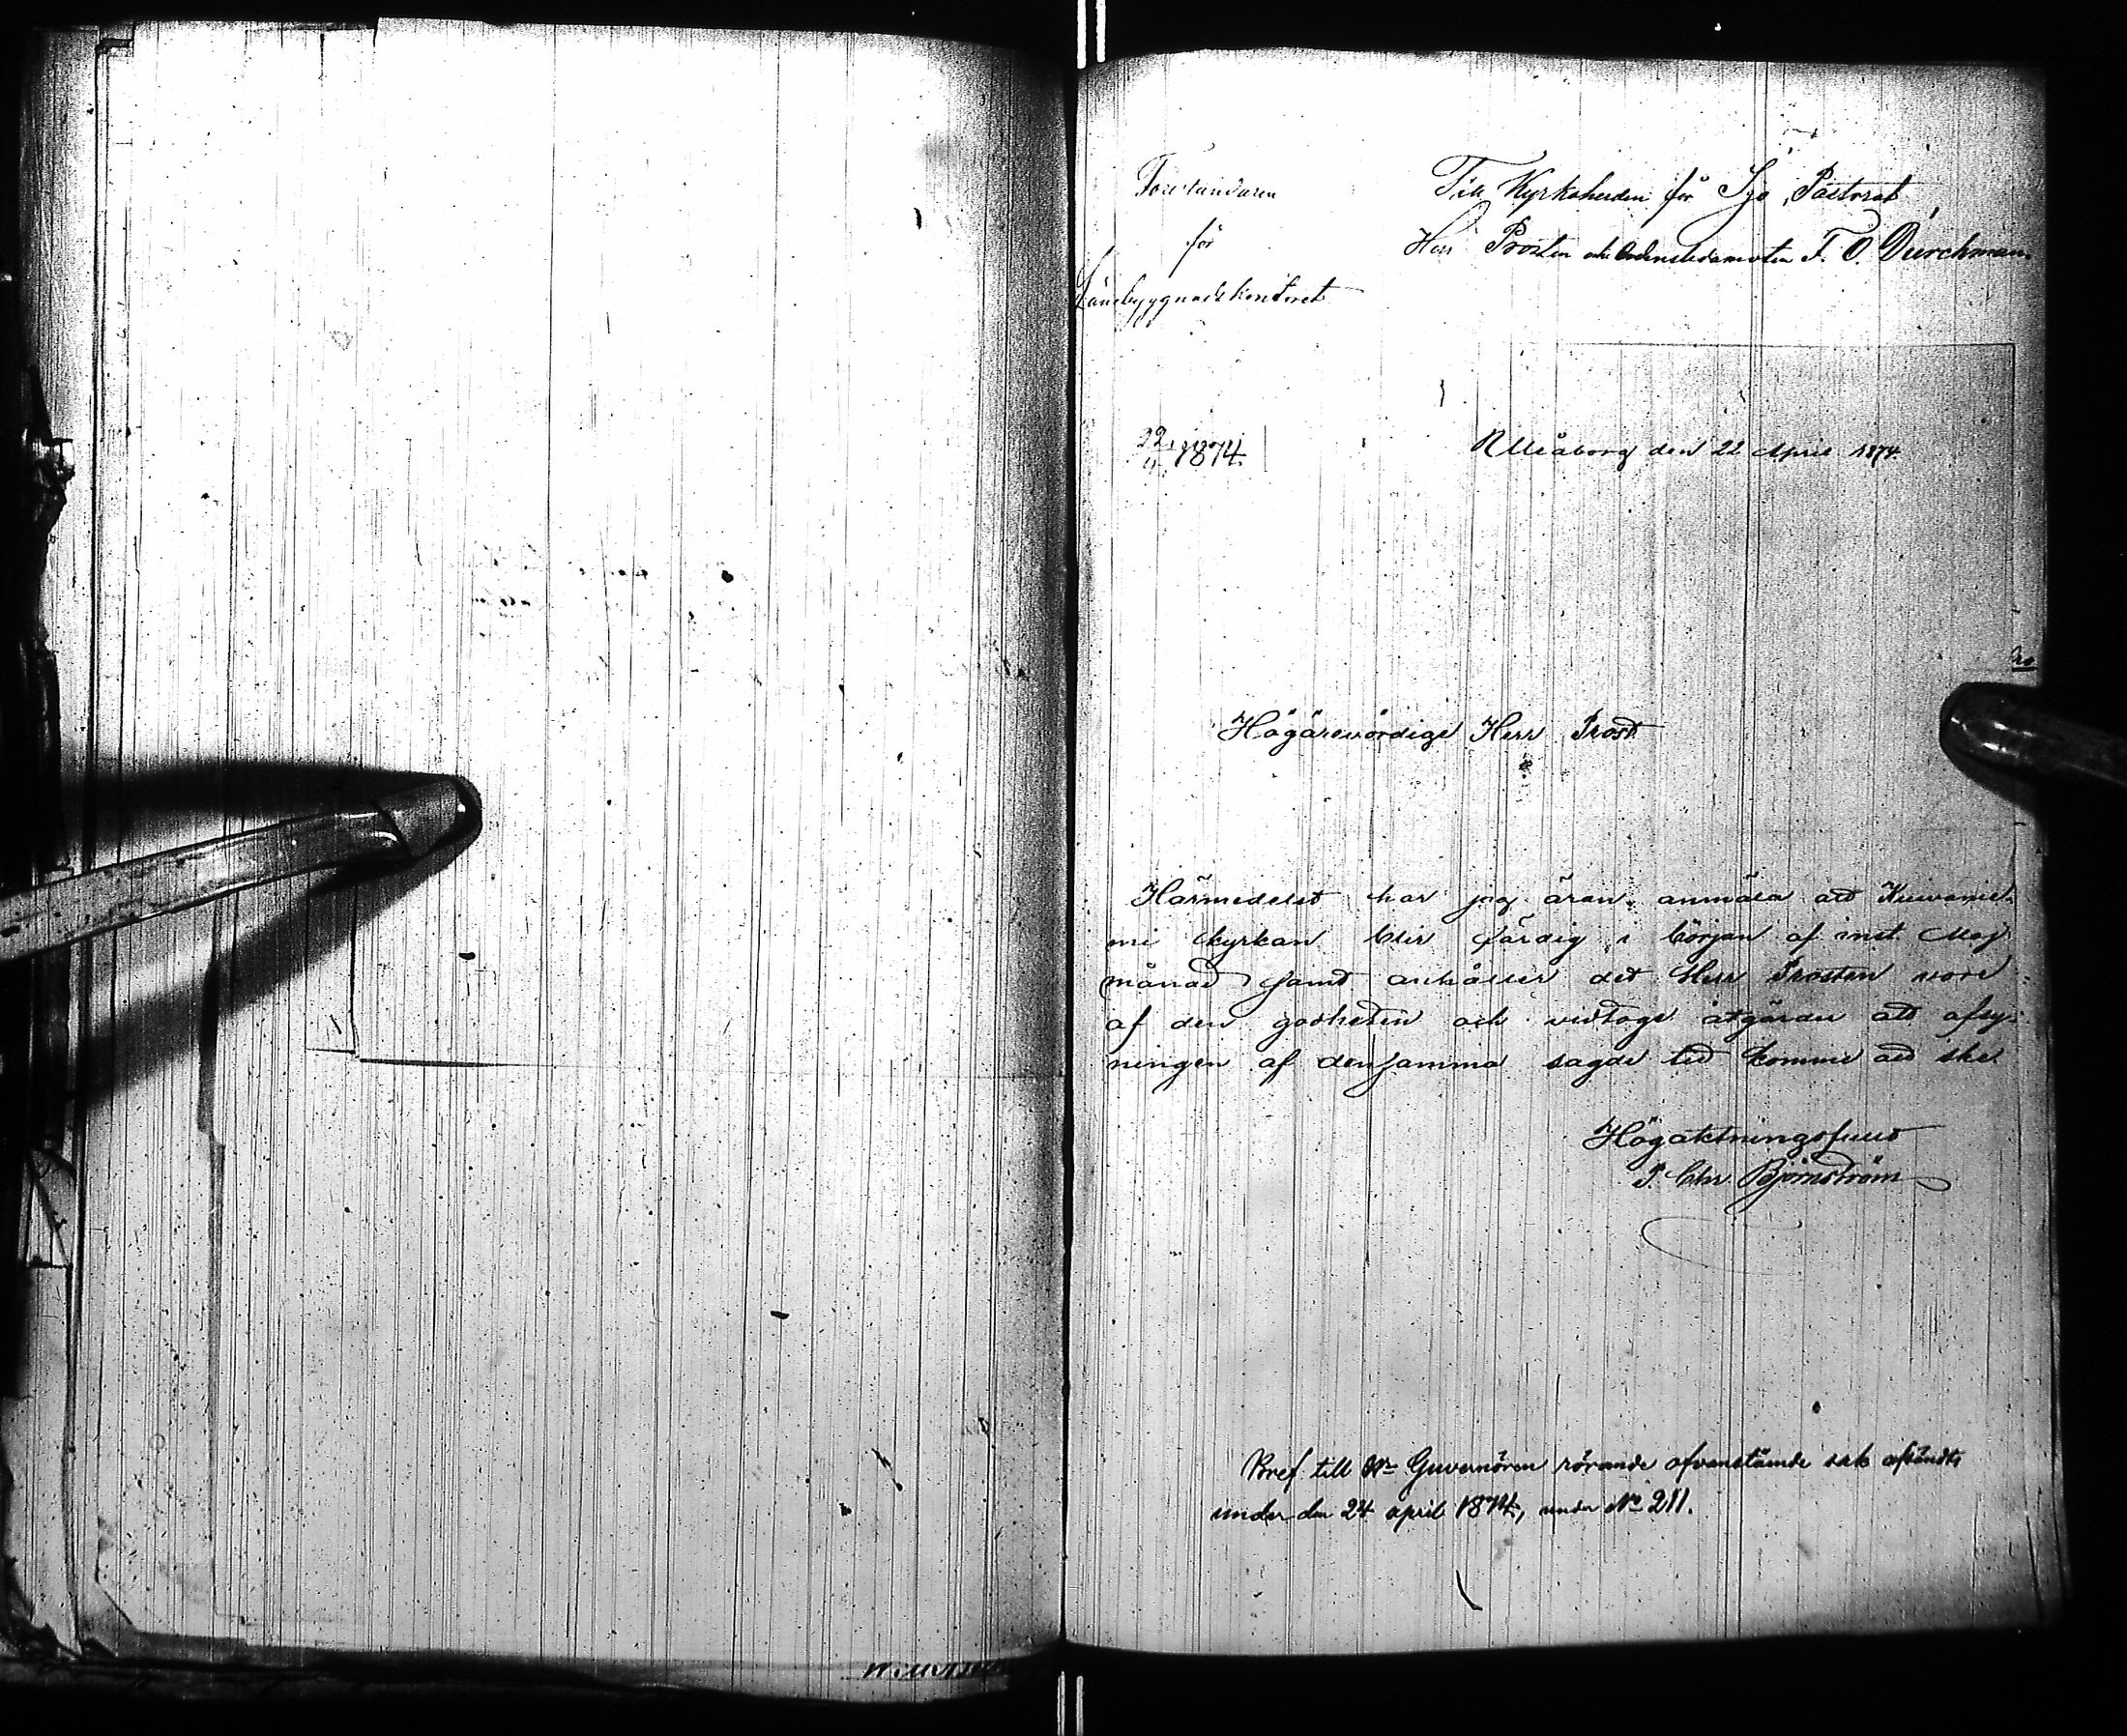 Föreståndaren
för
Länebyggnadskontoret
Till Kyrkoherden för Ijo Pastorat,
Herr Prosten och Ordensledamoten F. O. Durchman.
22/4 1874.
Uleåborg den 22 April 1874.
Högärevördige Herr Prost
Härmedelst har jag äran anmäla att Kuivanie-
mi kyrkan blir färdig i början af inst. Maj
månad samt anhåller det Herr Prosten vore
af den godheten och vidtoge åtgärder att afsy-
ningen af densamma sagde tid komme att ske
Högaktningsfullt
P. Chr Björnström
Bref till Hr Guvernören rörande ofvanstående sak afsändts
under den 24 april 1874, under No 211.